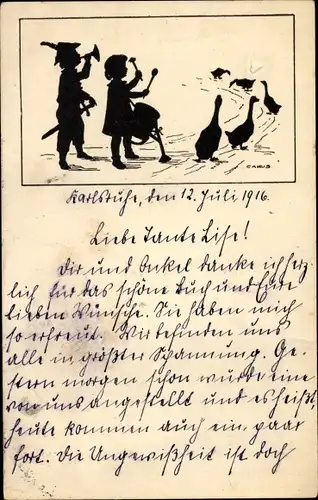 CARUS
Karlsruhe, den 12. Juli 1916.
Liebe Tante Lise!
Dir und Onkel danke ich herz-
lich für das schöne Buch und Eure
lieben Wünsche. Sie haben mich
so erfreut. Wir befinden uns
alle in größter Spannung. Ge-
stern morgen schon wurde eine
von uns angestellt und es heißt,
heute kommen auch ein paar
fort. Die Ungewißheit ist doch